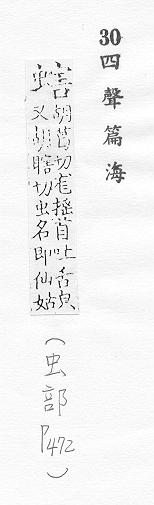 30
四聲篇海
螛胡葛切搖首吐舌皃
又胡瞎切虫名即仙姑
（虫部P472）